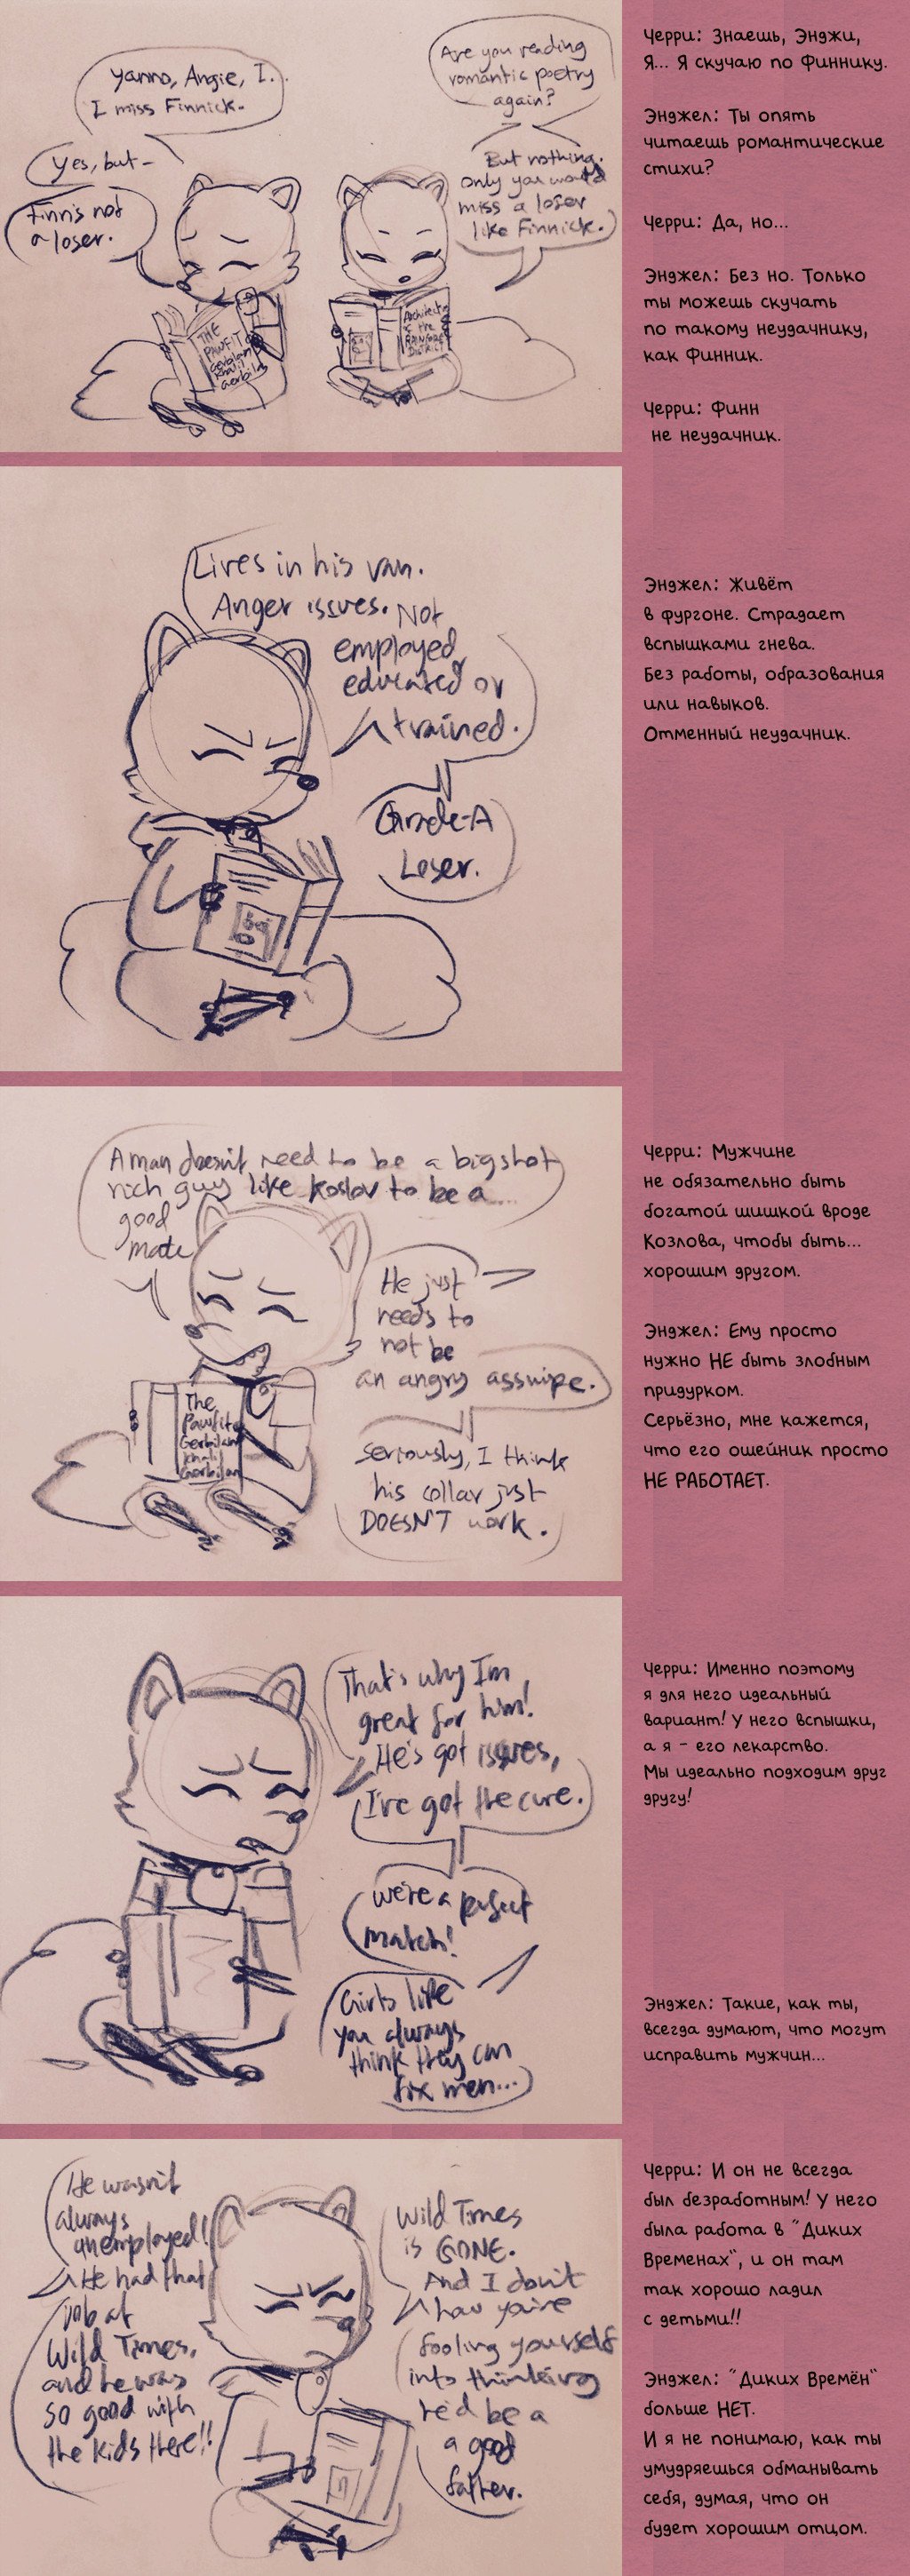 Yanno, Angie, I..
I miss Finnick.
Are you reading
romantic poetry
again?
Yes, but-
But nothing.
Only you would
miss a loser
like Finnick.
Finn's not
a loser.
THE
PAWFIT
Gerbilan
Khalil
Gerbilan
Architecture
of the
RAINFOREST
DISTRICT
Черри: Знаешь, Энджи,
Я... Я скучаю по Финнику.
Энджел: Ты опять
читаешь романтические
стихи?
Черри: Да, но...
Энджел: Без но. Только
ты можешь скучать
по такому неудачнику,
как Финник.
Черри: Финн
не неудачник.
Lives in his van.
Anger issues. Not
employed,
educated or
trained.
Grade-A
Loser.
Энджел: Живёт
в фургоне. Страдает
вспышками гнева.
Без работы, образования
или навыков.
Отменный неудачник.
A man doesn't need to be a bigshot
rich guy like Koslov to be a...
good
mate
He just
needs to
not be
an angry asswipe.
Seriously, I think
his collar just
DOESN'T work.
The
Pawfit
Gerbilan
Khalil
Gerbilan
Черри: Мужчине
не обязательно быть
богатой шишкой вроде
Козлова, чтобы быть...
хорошим другом.
Энджел: Ему просто
нужно НЕ быть злобным
придурком.
Серьёзно, мне кажется,
что его ошейник просто
НЕ РАБОТАЕТ.
That's why I'm
great for him!
He's got issues,
I've got the cure.
We're a perfect
match!
Girls like
you always
think they can
fix men...
Черри: Именно поэтому
я для него идеальный
вариант! У него вспышки,
а я - его лекарство.
Мы идеально подходим друг
другу!
Энджел: Такие, как ты,
всегда думают, что могут
исправить мужчин...
He wasn't
always
unemployed!
He had that
job at
Wild Times,
and he was
so good with
the kids there!!
Wild Times
is GONE.
And I don't
how you're
fooling yourself
into thinking
he'd be a
a good
father.
Черри: И он не всегда
был безработным! У него
была работа в "Диких
Временах", и он там
так хорошо ладил
с детьми!!
Энджел: "Диких Времён"
больше НЕТ.
И я не понимаю, как ты
умудряешься обманывать
себя, думая, что он
будет хорошим отцом.